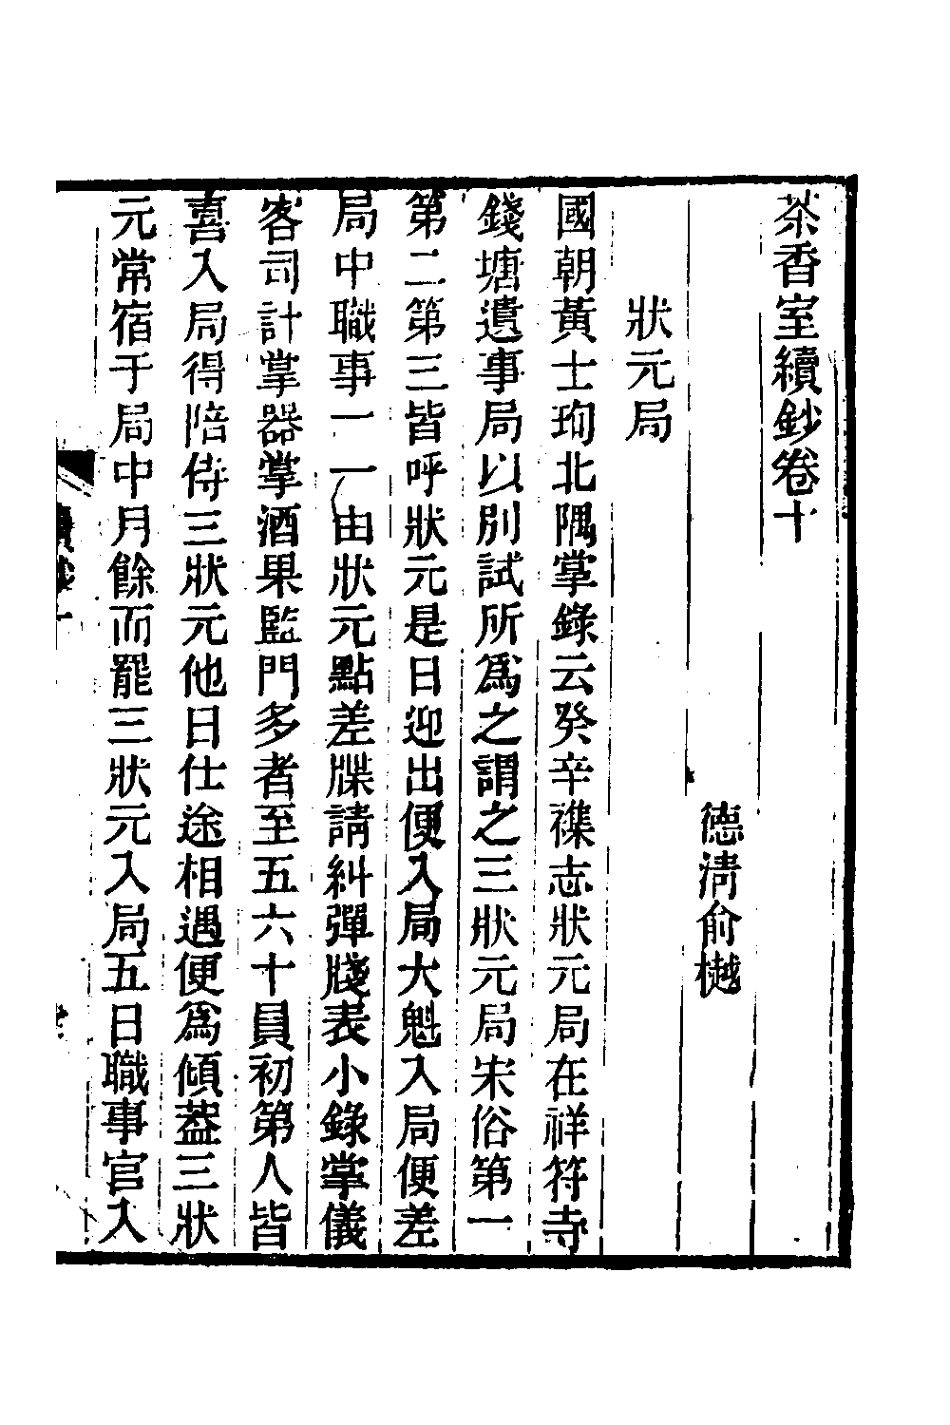 茶香室續鈔卷十
德淸俞樾
狀元局
國朝黃士珣北隅掌錄云癸辛襍志狀元局在祥符寺
錢塘遺事局以別試所爲之謂之三狀元局宋俗第一
第二第三皆呼狀元是日迎出便入局大魁入局便差
局中職事一一由狀元點差牒請糾彈牋表小錄掌儀
客司計掌器掌酒果監門多者至五六十員初第人皆
喜入局得陪侍三狀元他日仕途相遇便爲傾葢三狀
元常宿于局中月餘而罷三狀元入局五日職事官入